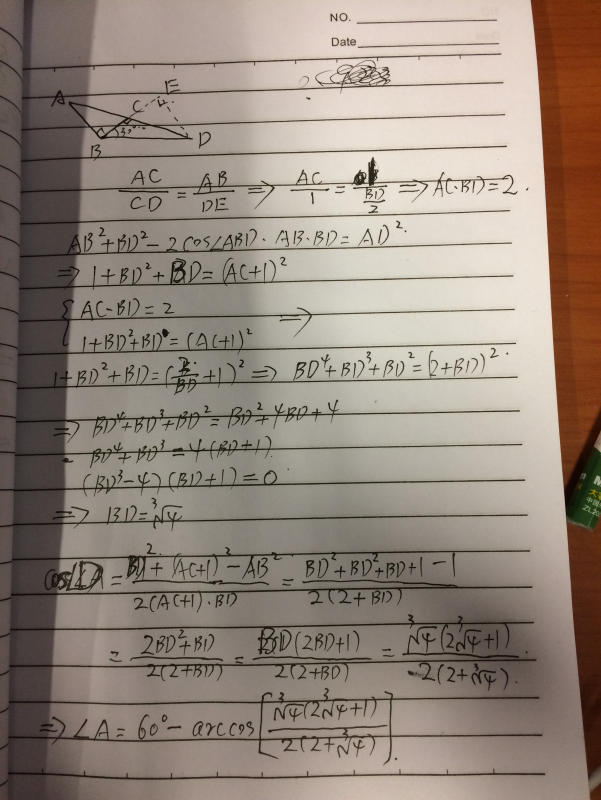 NO.
Date
A
E
C
30°
B
D
AC/CD = AB/DE ⇒ AC/1 = 1/(BD/2) ⇒ AC·BD = 2.
AB² + BD² - 2cos∠ABD · AB·BD = AD².
⇒ 1 + BD² + BD = (AC+1)²
{ AC·BD = 2
1 + BD² + BD = (AC+1)² ⇒
1 + BD² + BD = (2/BD + 1)² ⇒ BD⁴ + BD³ + BD² = (2+BD)².
⇒ BD⁴ + BD³ + BD² = BD² + 4BD + 4
BD⁴ + BD³ = 4(BD+1)
(BD³-4)(BD+1) = 0
⇒ BD = ∛4
cos∠D = (BD² + (AC+1)² - AB²)/(2(AC+1)·BD) = (BD² + BD² + BD + 1 - 1)/(2(2+BD))
= (2BD² + BD)/(2(2+BD)) = (BD(2BD+1))/(2(2+BD)) = (∛4(2∛4+1))/(2(2+∛4)).
⇒ ∠A = 60° - arccos[(∛4(2∛4+1))/(2(2+∛4))].